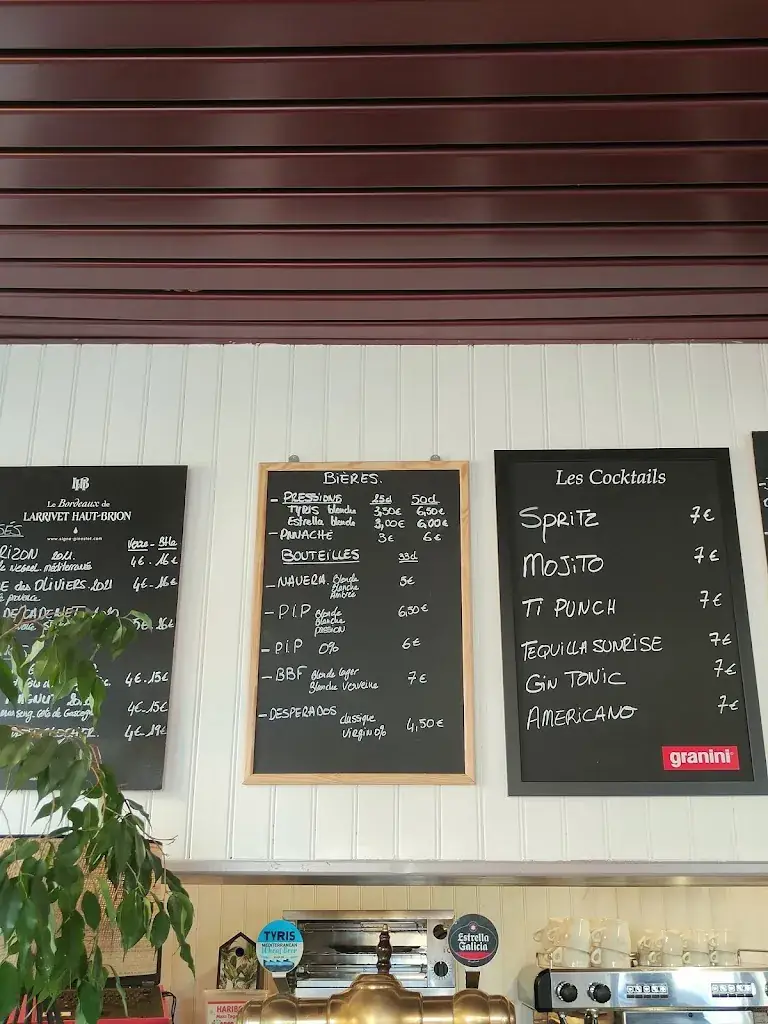 LHB
Le Bordeaux de
LARRIVET HAUT-BRION
Verre - Btle
2021. 4€ - 16€
méditerranée
des OLIVIERS. 2021 4€ - 16€
4€ - 15€
4€ - 15€
Côte de Gascogne
4€ - 19€
BIÈRES.
- PRESSIONS 25cl 50cl
TYRIS blonde 3,50€ 6,50€
Estrella blonde 3,00€ 6,00€
- PANACHÉ 3€ 6€
BOUTEILLES 33cl
- NAVERA Blonde 5€
Blanche
Ambrée
- P.I.P Blonde 6,50€
Blanche
PASSION
- P.I.P 0% 6€
- BBF Blonde lager 7€
Blanche Verveine
- DESPERADOS classique 4,50€
Virgin 0%
Les Cocktails
SPRITZ 7€
MOJITO 7€
TI PUNCH 7€
TEQUILLA SUNRISE 7€
GIN TONIC 7€
AMERICANO 7€
granini
TYRIS
MEDITERRANEAN
Wheat Beer
Estrella
Galicia
HARIBO